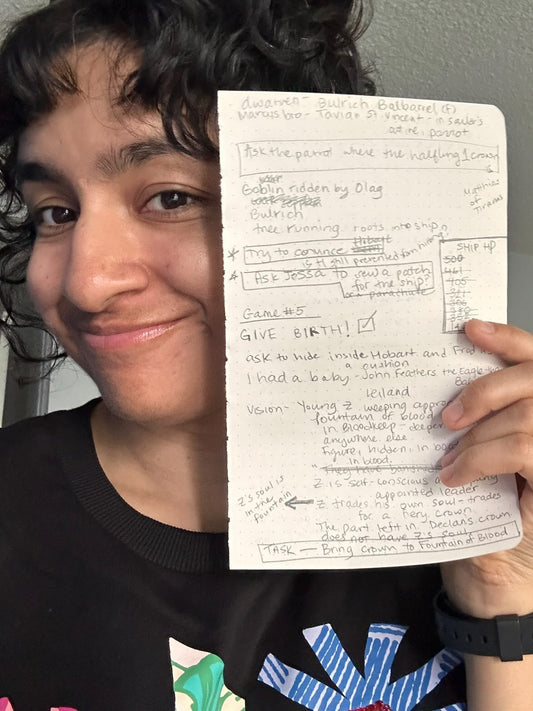 dwarven - Bulrich Balbarrel (F)
Marcus bro - Tavian St. Vincent - in sailor's
attire, parrot
Ask the parrot where the halfling is
1 crown
Goblin ridden by Olag
Mathias
of
Tiranas
Bulrich
tree running roots into ship
* Try to convince
is H still prevented from hiring?
* Ask Jessa to sew a patch
for the ship?
or a parachute
SHIP HP
500
461
405
Game #5
GIVE BIRTH! ☑
ask to hide inside Hobart and Fred
a cushion
I had a baby - John Feathers the Eagle
Leiland
Vision - Young Z weeping
fountain of blood
in Bloodkeep - deeper
anywhere else
Figure, hidden, in
in blood.
"They have banished
Z is self-conscious
appointed leader
Z's soul is
in the
fountain
← Z trades his own soul - trades
for a fiery crown
The part left in Declans crown
does not have Z's soul
TASK — Bring crown to Fountain of Blood